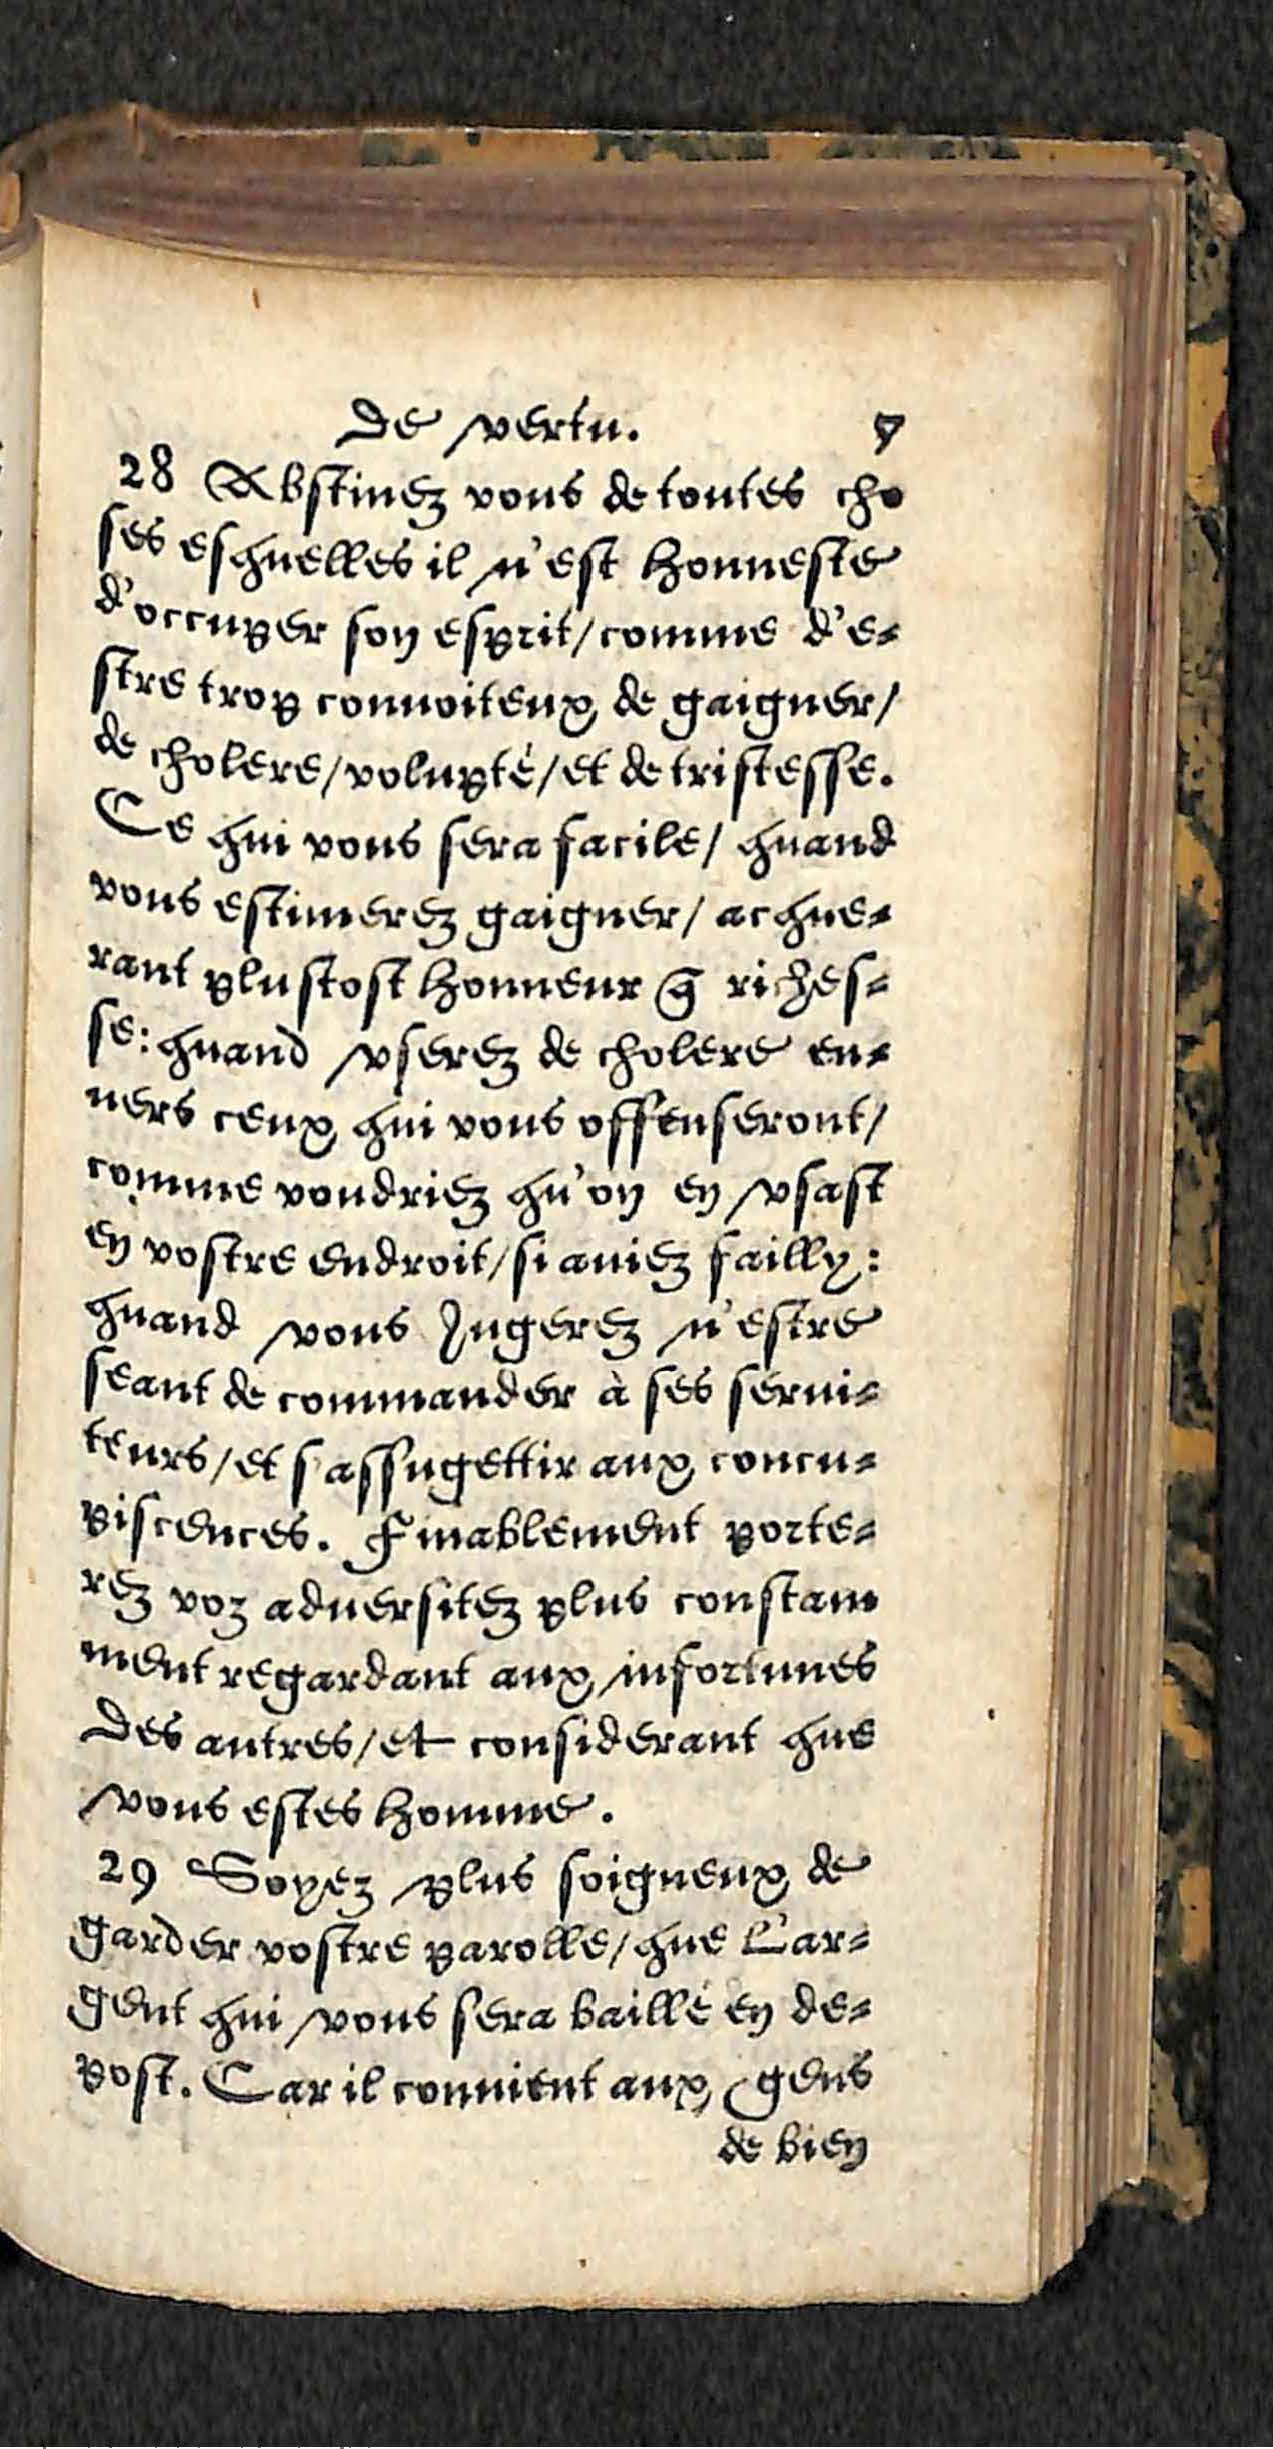 De vertu. 7
28 Abstinez vous de toutes cho
ses esquelles il n'est honneste
d'occuper son esprit/comme d'e-
stre trop conuoiteux de gaigner/
de cholere/volupté/et de tristesse.
Ce qui vous sera facile/ quand
vous estimerez gaigner/ acque-
rant plustost honneur q̃ riches-
se: quand vserez de cholere en-
uers ceux qui vous offenseront/
comme voudriez qu'on en vsast
en vostre endroit/si auiez failly:
quand vous Jugerez n'estre
seant de commander à ses serui-
teurs/et s'assugettir aux concu-
piscences. Finablement porte-
rez voz aduersitez plus constam
ment regardant aux infortunes
Des autres/et considerant que
vous estes homme.
29 Soyez plus soigneux de
garder vostre parolle/que L'ar-
gent qui vous sera baillé en de-
post. Car il conuient aux gens
de bien